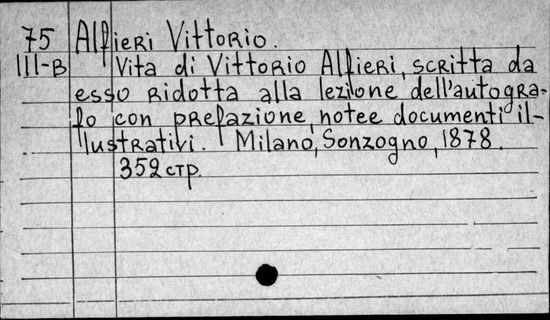 75 Alfieri Vittorio.
III-B Vita di Vittorio Alfieri, scritta da
esso ridotta alla lezilone dell'autogra-
fo con prefazione, notee documenti il-
lustrativi. Milano, Sonzogno, 1878.
352 стр.